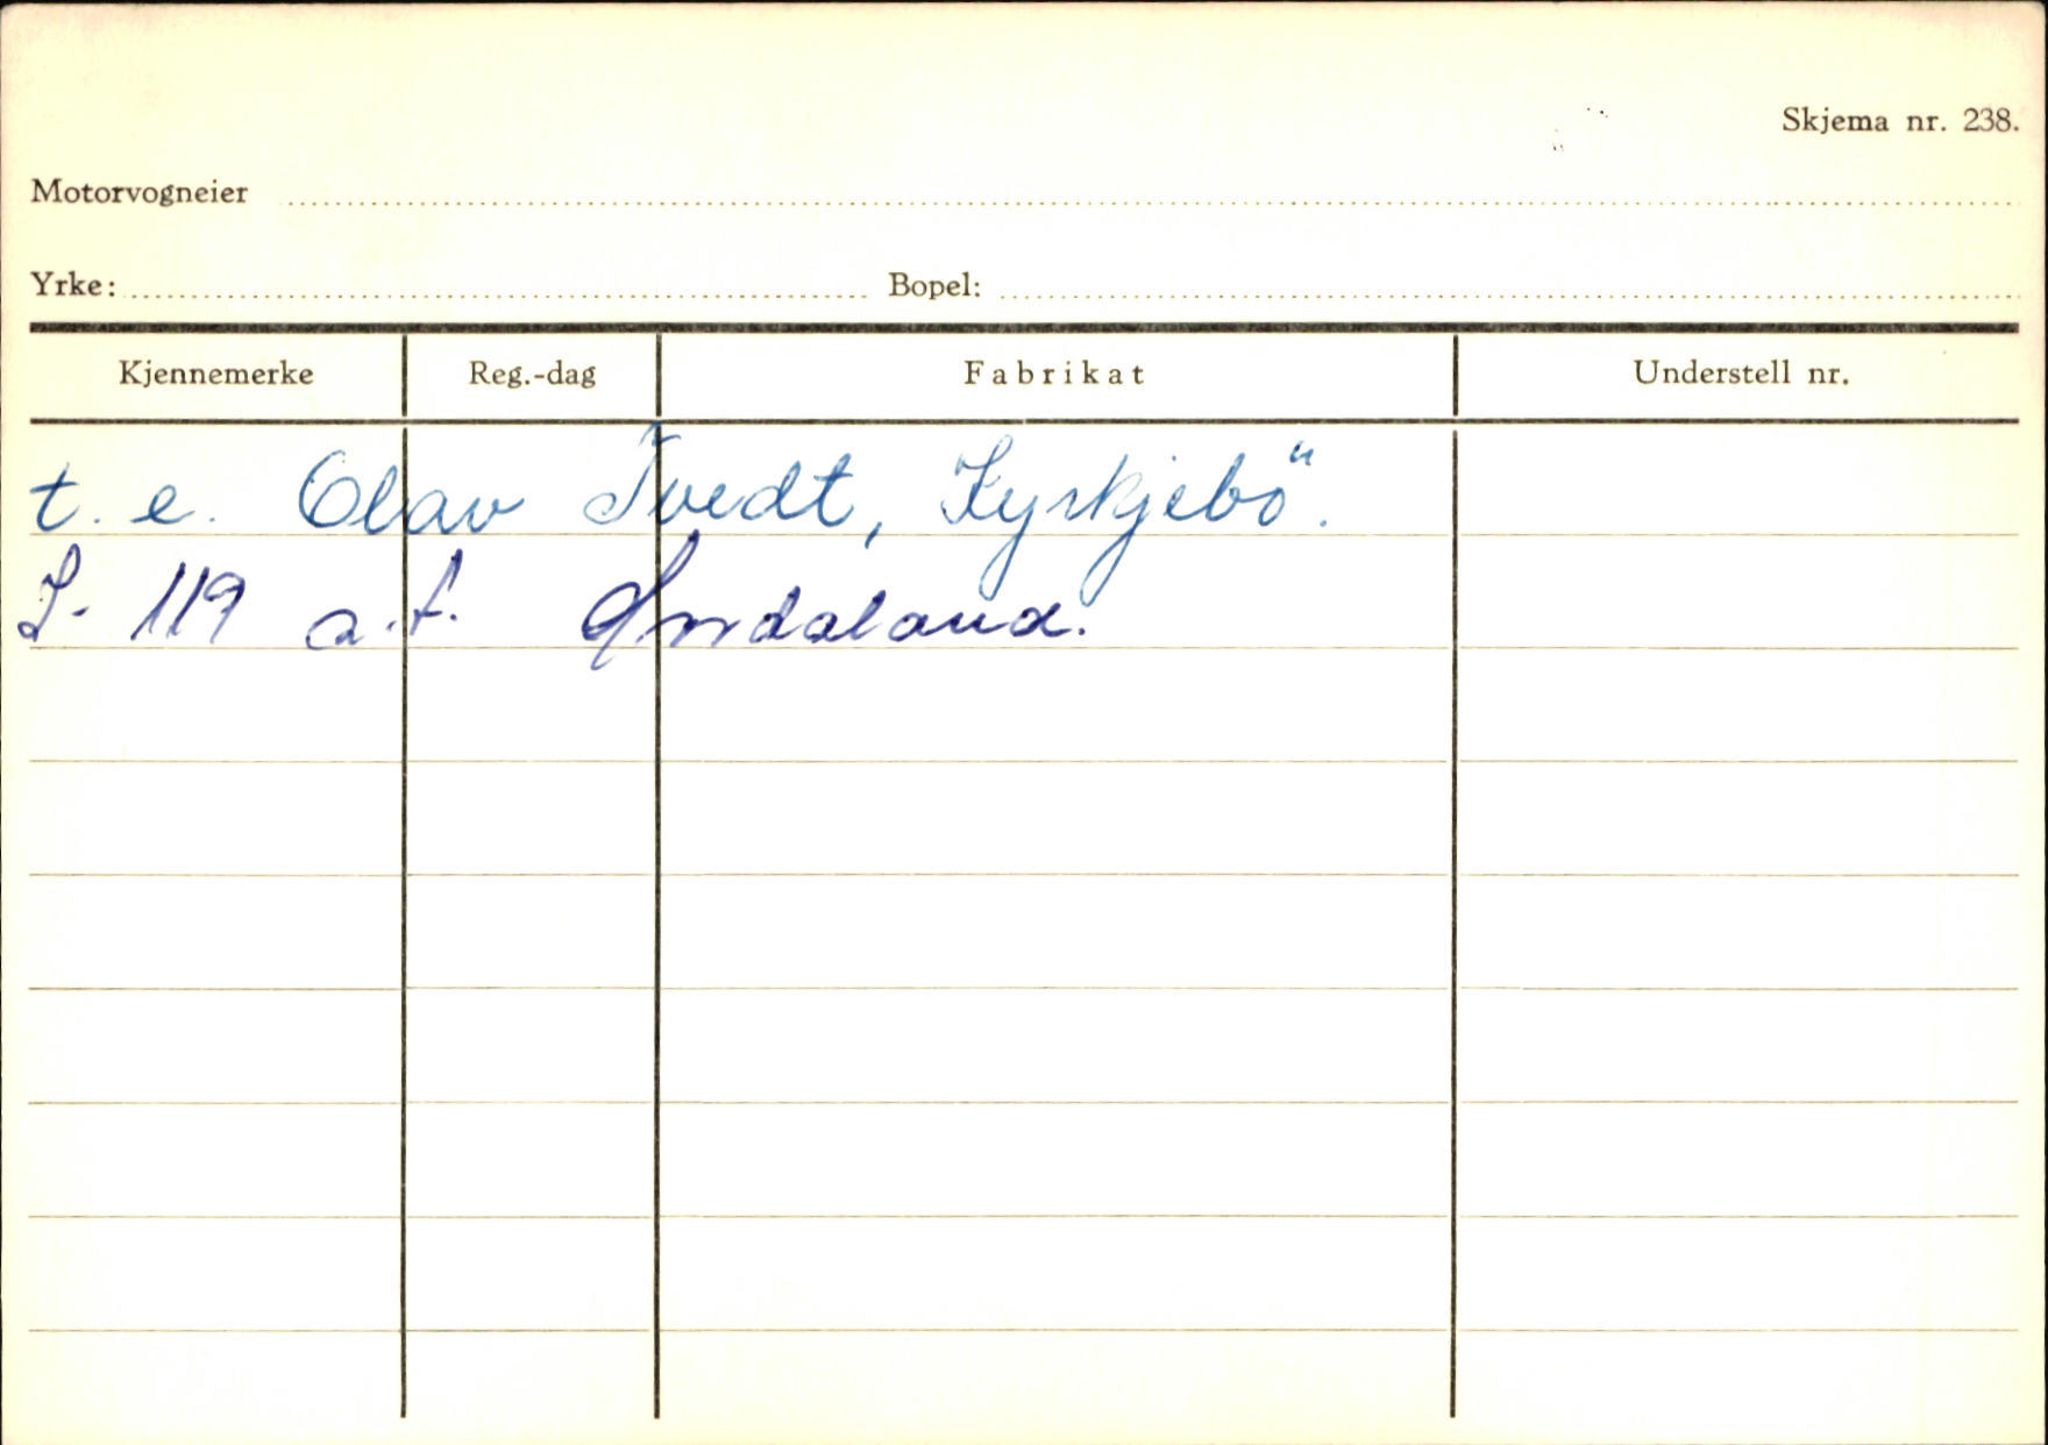 Skjema nr. 238.
Motorvogneier
Yrke: Bopel:
Kjennemerke Reg.-dag Fabrikat Understell nr.
t. e. Olav Tvedt, Kyrkjebö".
S- 119 a.t.